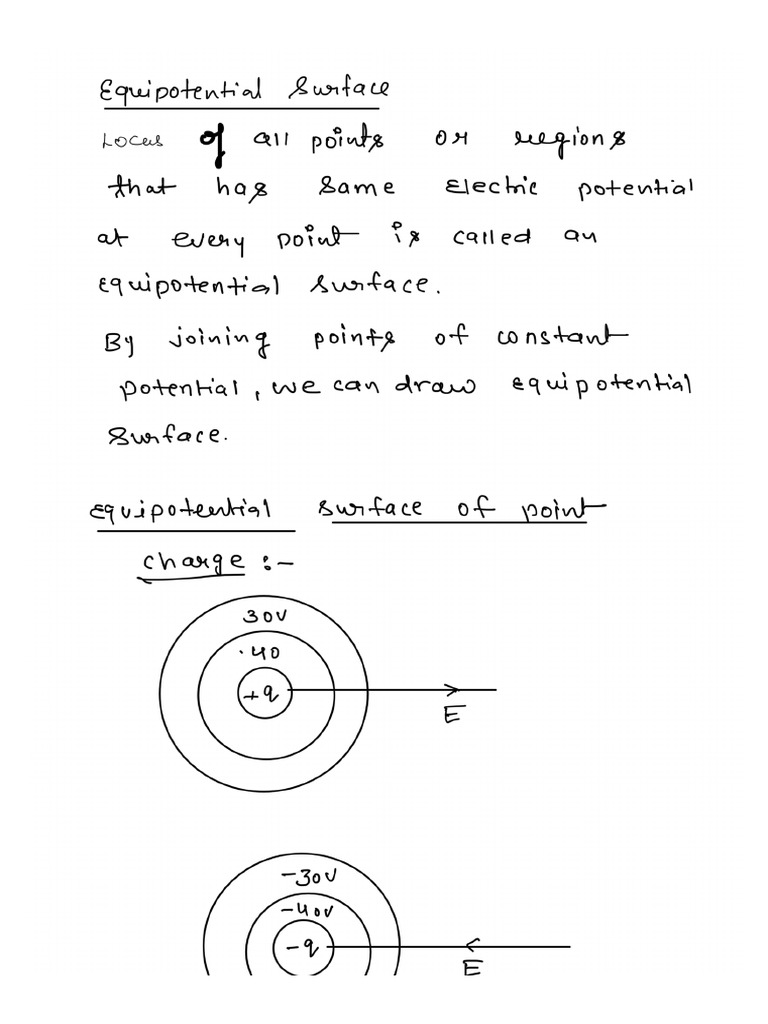 Equipotential Surface
Locus of all points or regions
that has same Electric potential
at every point is called an
equipotential surface.
By joining points of constant
potential, we can draw equipotential
surface.
equipotential surface of point
charge :-
30V
40
+q
E
-30V
-40V
-q
E